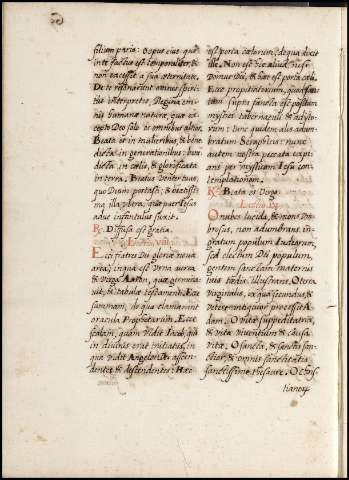 filium paris: o opus eius quod
in te factus est temporaliter, &
non excessit a sua æternitate.
De te resonarunt animis spiri-
tus interpretes, Regina om-
nis humanæ naturæ, quæ ex-
cepto Deo solo es omnibus altior.
Beata es in mulieribus, & bene-
dicta in generationibus: bene-
dicta in cælis, & glorificata
in terra. Beatus venter tuus,
quo Deum portasti: & beatissi-
ma illa ubera, quæ puer Iesus
adhuc infantulus suxit.
R. Diffusa est gratia.
Lectio viij.
Ecce fratres Dei gloriæ nova
arca, in qua est Urna aurea
& Virga Aaron, quæ germina-
vit, & tabulæ testament. Ecce
summam, de qua clamarunt
oracula Prophetarum. Ecce
scalam, quam vidit Iacob, qui
in divinis erat initiatis, in
qua vidit Angelos Dei ascen-
dentes, & descendentes. Hæc
est porta cælorum, de qua dicit
ille. Non est hic aliud, nisi
Domus Dei, & hæc est porta cæli.
Ecce propitiatorium, quod san-
ctum supra sancta est positum
mystici tabernaculi & adyto-
rum: hinc quidem alis adum-
bratum Seraphicis: nunc
autem nostra peccata expi-
ans per mysticam Iesu con-
templationem.
R. Beata es Virgo.
Lectio ix.
O nubes lucida, & non um-
brosus, non adumbrans in-
gratum populum Iudæorum,
sed electum Dei populum,
gentem sanctam maternis
tuis tædis illustrans. O terra
virginalis, ex qua secundus, &
vetere antiquior processit A-
dam. O vitæ suppeditatrix,
& vita viventium & causa
vitæ. O sancta, & sanctis san-
ctior, & omnis sanctitatis
sanctissime thesaure. O chris-
tianorum